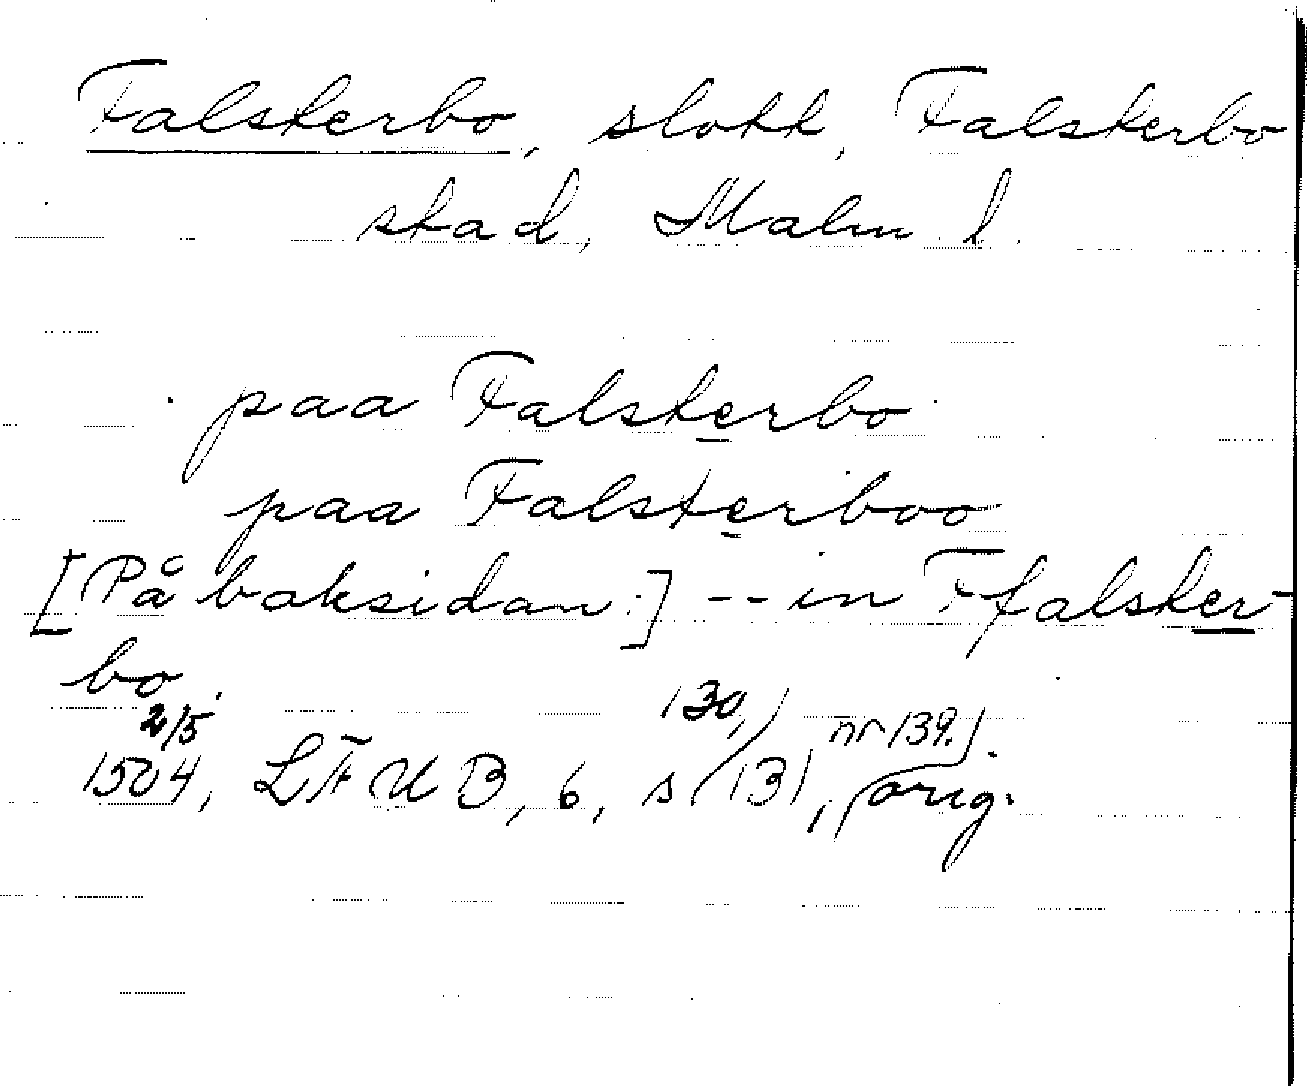 Falsterbo, slott, Falsterbo
stad, Malm l.
paa Falsterbo
paa Falsterboo
[På baksidan:] -- in Ffalster-
bo.
2/5 130, nr 139.
1504, LFUB, 6, s 131, orig.